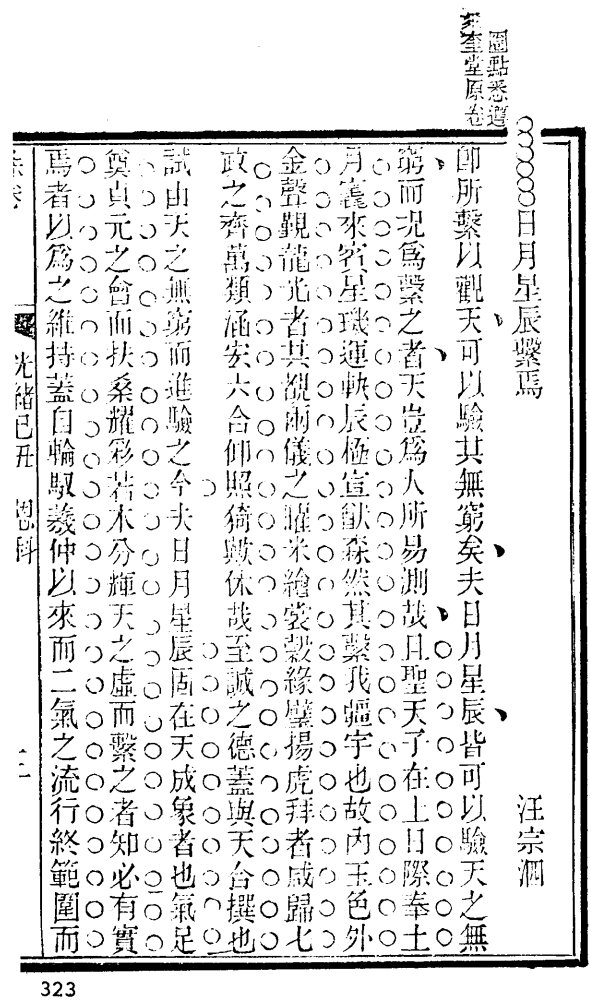 圈點悉遵
奎堂原卷
日月星辰繫焉
汪宗泗
即所繫以觀天可以驗其無窮矣夫日月星辰皆可以驗天之無
窮而況爲繫之者天豈爲人所易測哉且聖天子在上日際奉土
月竁來賓星璣運軼辰極宣猷森然其繫我疆宇也故内玉色外
金聲覲龍光者其覩兩儀之曜米繪裳縠緣璧揚虎拜者咸歸七
政之齊萬類涵安六合仰照猗歟休哉至誠之德蓋與天合撰也
試由天之無窮而進驗之今夫日月星辰固在天成象者也氣足
奠貞元之會而扶桑耀彩若木分輝天之虛而繫之者知必有實
焉者以爲之維持蓋自輪馭羲仲以來而二氣之流行終範圍而
光緒己丑 恩科
二
323